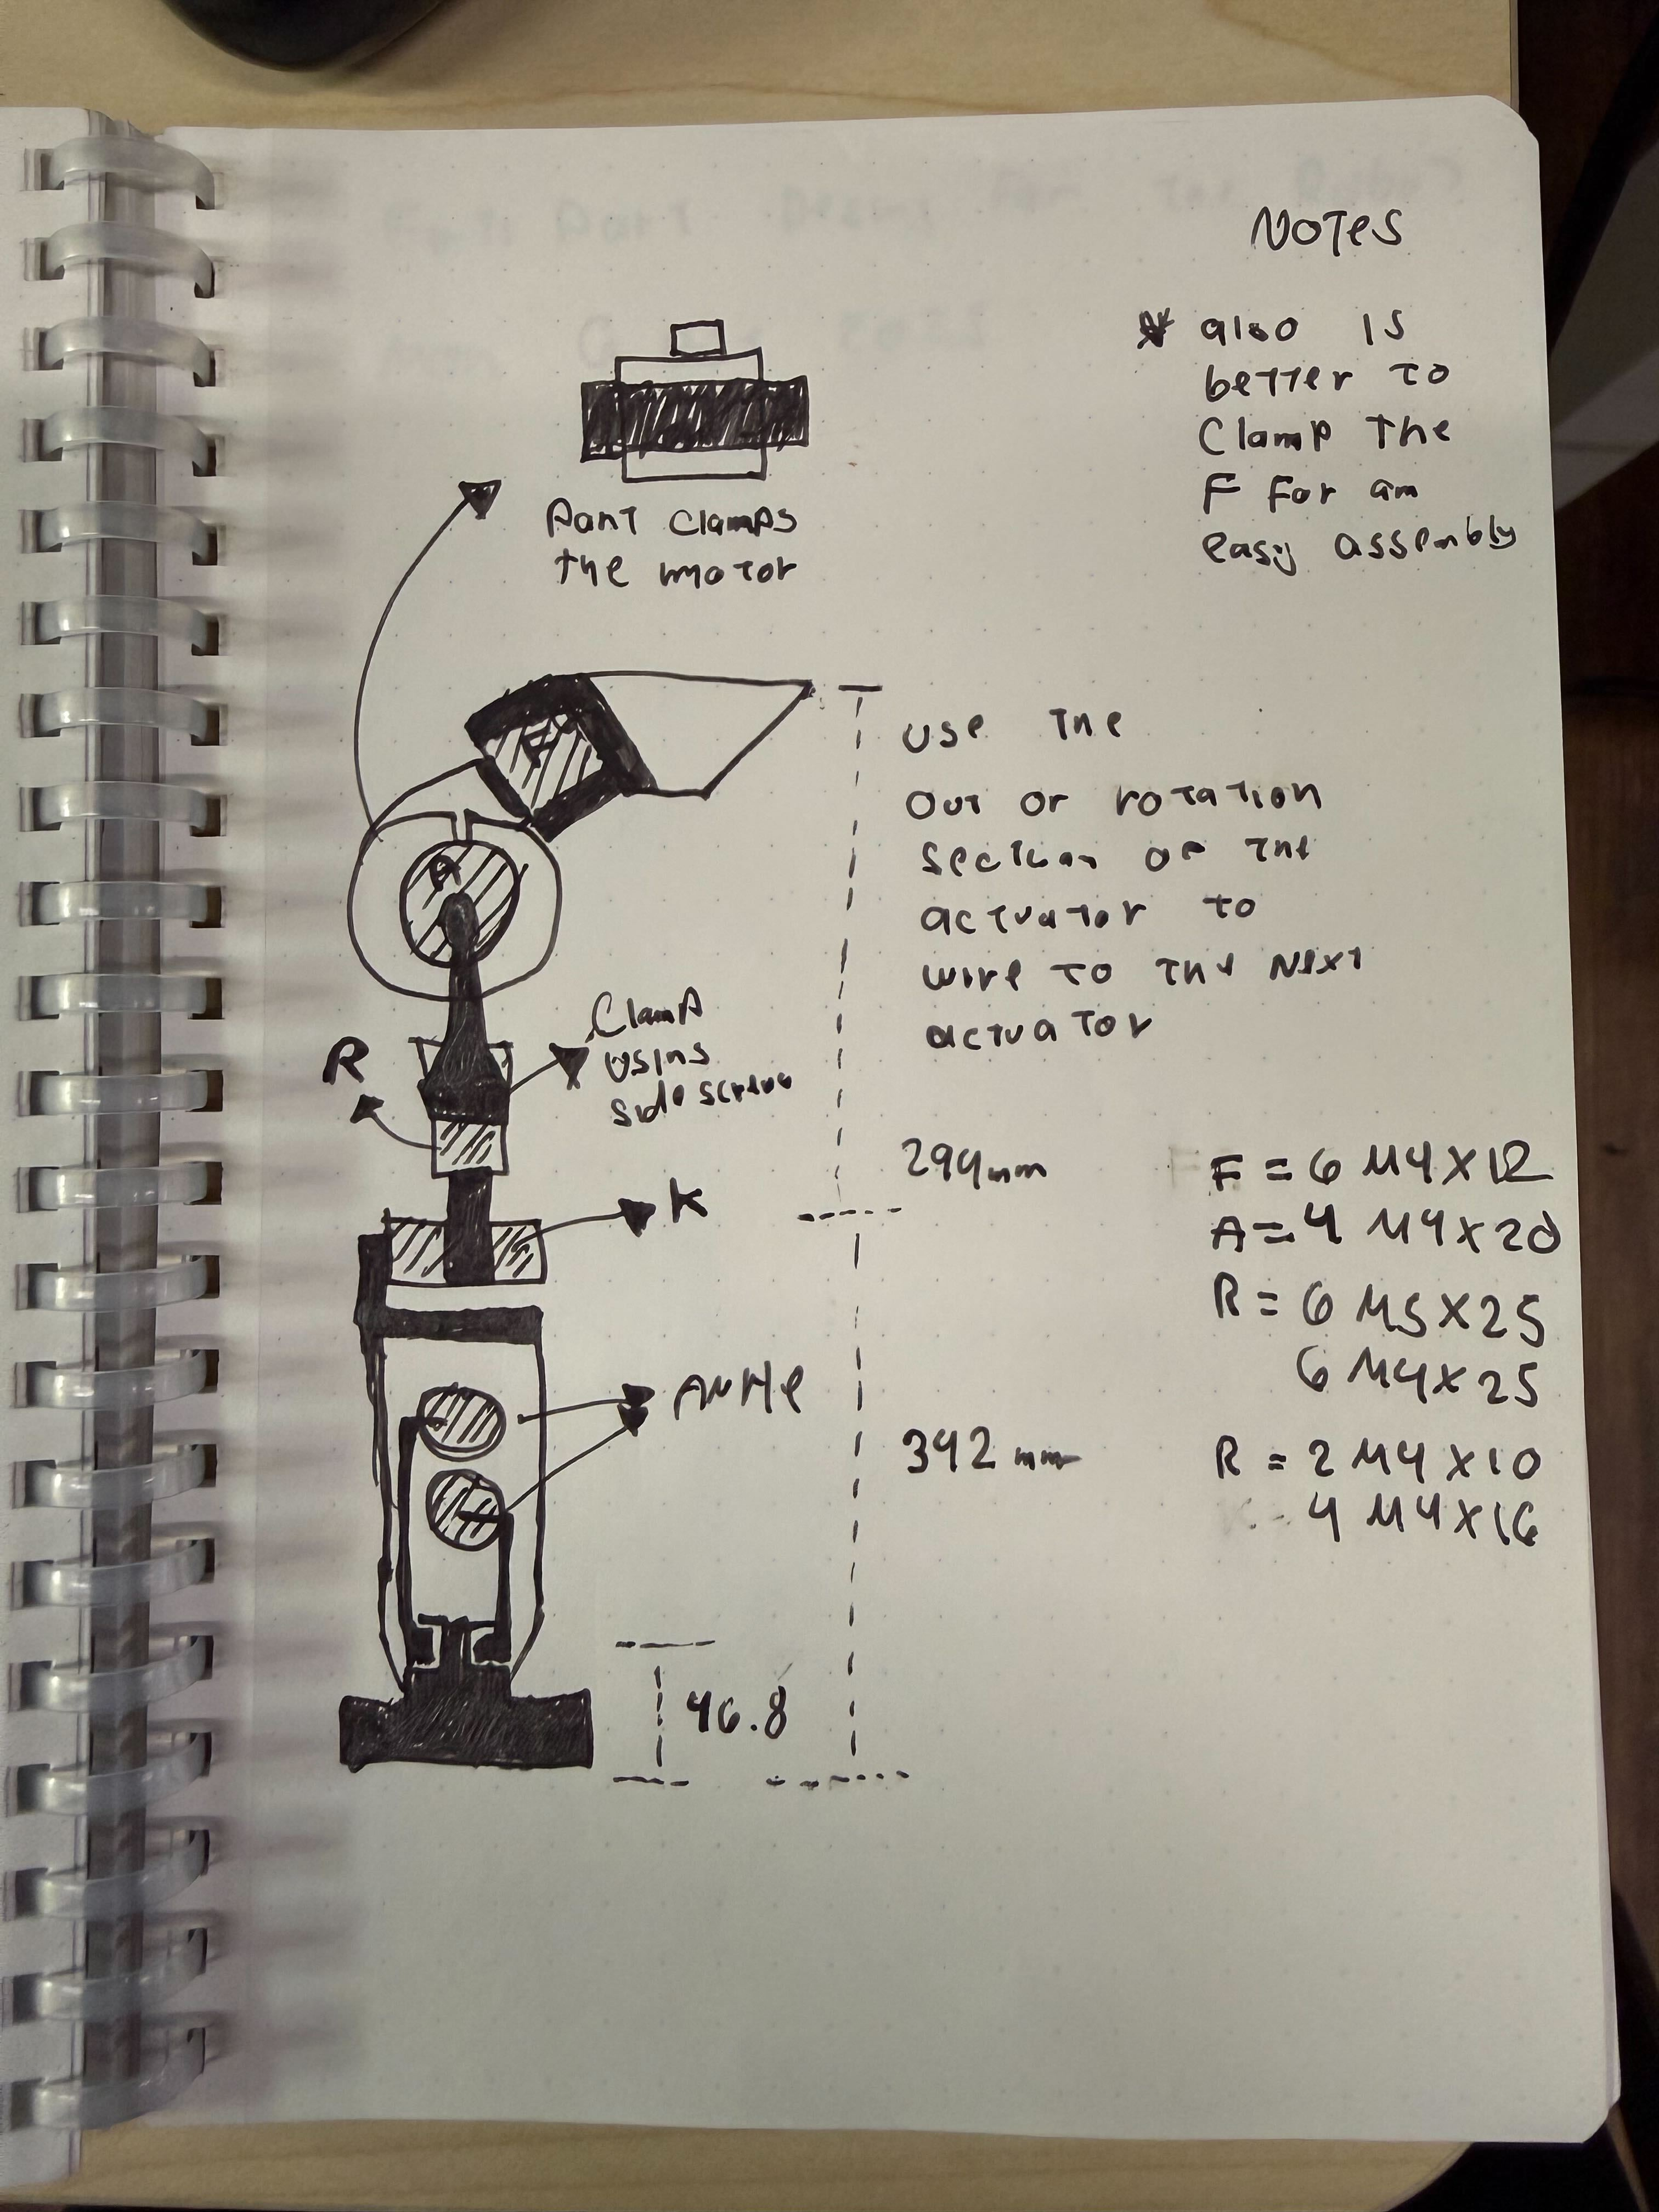 NOTES
* also is
better to
Clamp the
F For an
easy assembly
Part clamps
the motor
F
use the
out or rotation
section of the
actuator to
wire to the next
actuator
A
Clamp
using
side screws
R
294mm
K
F = 6 M4X12
A = 4 M4X20
R = 6 M5X25
6 M4X25
Ankle
392 mm
R = 2 M4X10
4 M4X16
46.8